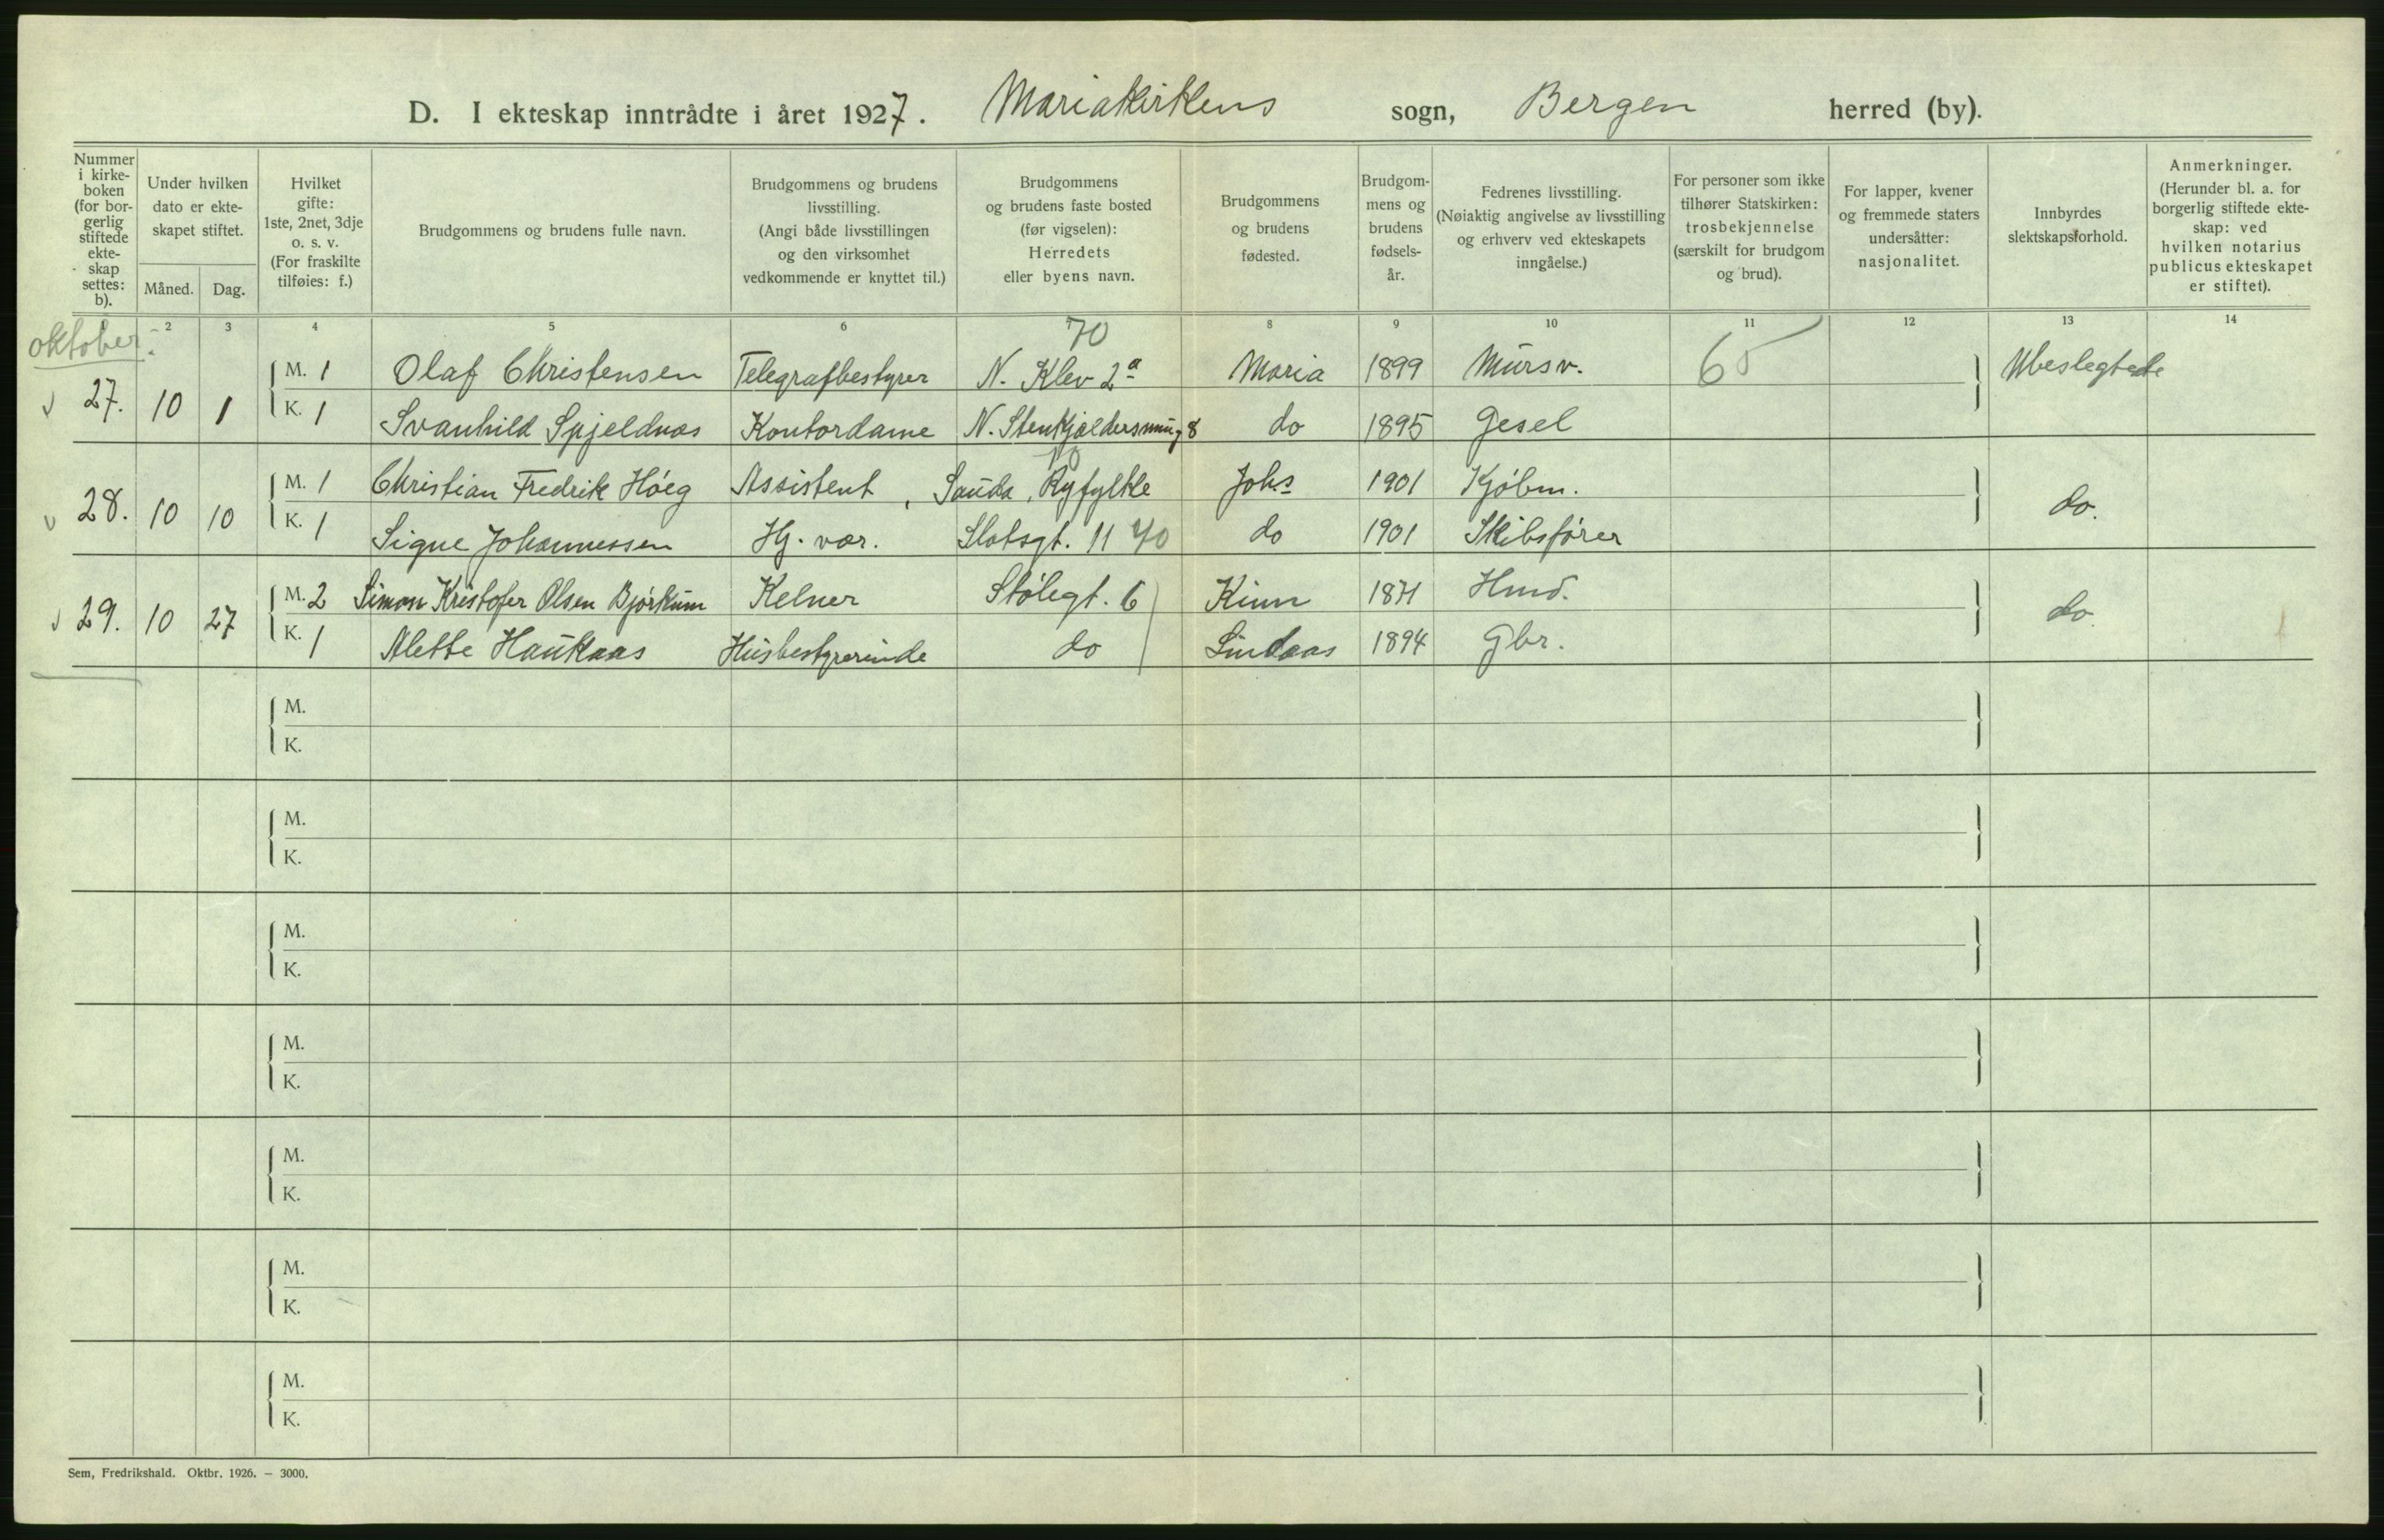 D. I ekteskap inntrådte i året 1927. Mariakirkens sogn, Bergen herred (by).
Nummer i kirke- boken (for bor- gerlig stiftede ekte- skap settes: b).
Under hvilken dato er ekte- skapet stiftet.
Måned. Dag.
Hvilket gifte: 1ste, 2net, 3dje o. s. v. (For fraskilte tilføies: f.)
Brudgommens og brudens fulle navn.
Brudgommens og brudens livsstilling. (Angi både livsstillingen og den virksomhet vedkommende er knyttet til.)
Brudgommens og brudens faste bosted (før vigselen): Herredets eller byens navn.
Brudgommens og brudens fødested.
Brudgom- mens og brudens fødsels- år.
Fedrenes livsstilling. (Nøiaktig angivelse av livsstilling og erhverv ved ekteskapets inngåelse.)
For personer som ikke tilhører Statskirken: trosbekjennelse (særskilt for brudgom og brud).
For lapper, kvener og fremmede staters undersåtter: nasjonalitet.
Innbyrdes slektskapsforhold.
Anmerkninger. (Herunder bl. a. for borgerlig stiftede ekte- skap: ved hvilken notarius publicus ekteskapet er stiftet).
2 3 4 5 6 8 9 10 11 12 13 14
oktober. 70
M. 1 Olaf Christensen Telegrafbestyrer N. Klev 2a Maria 1899 Mursv. 65 Ubeslegtede
27. 10 1
K. 1 Svanhild Spjeldnæs Kontordame N. Stenkjældersmug 8 do 1895 Gesel
M. 1 Christian Fredrik Høeg Assistent, Sauda, Ryfylke Johs 1901 Kjøbm.
28. 10 10 do.
K. 1 Signe Johannessen Hj. vær. Slotsgt. 11 70 do 1901 Skibsfører
M. 2 Simon Kristofer Olsen Bjørkum Kelner Stølegt. 6 Kinn 1871 Hmd.
29. 10 27 do.
K. 1 Alette Haukaas Husbestyrerinde do Lindaas 1894 Gbr.
M.
K.
M.
K.
M.
K.
M.
K.
M.
K.
M.
K.
M.
K.
Sem, Fredrikshald. Oktbr. 1926. – 3000.